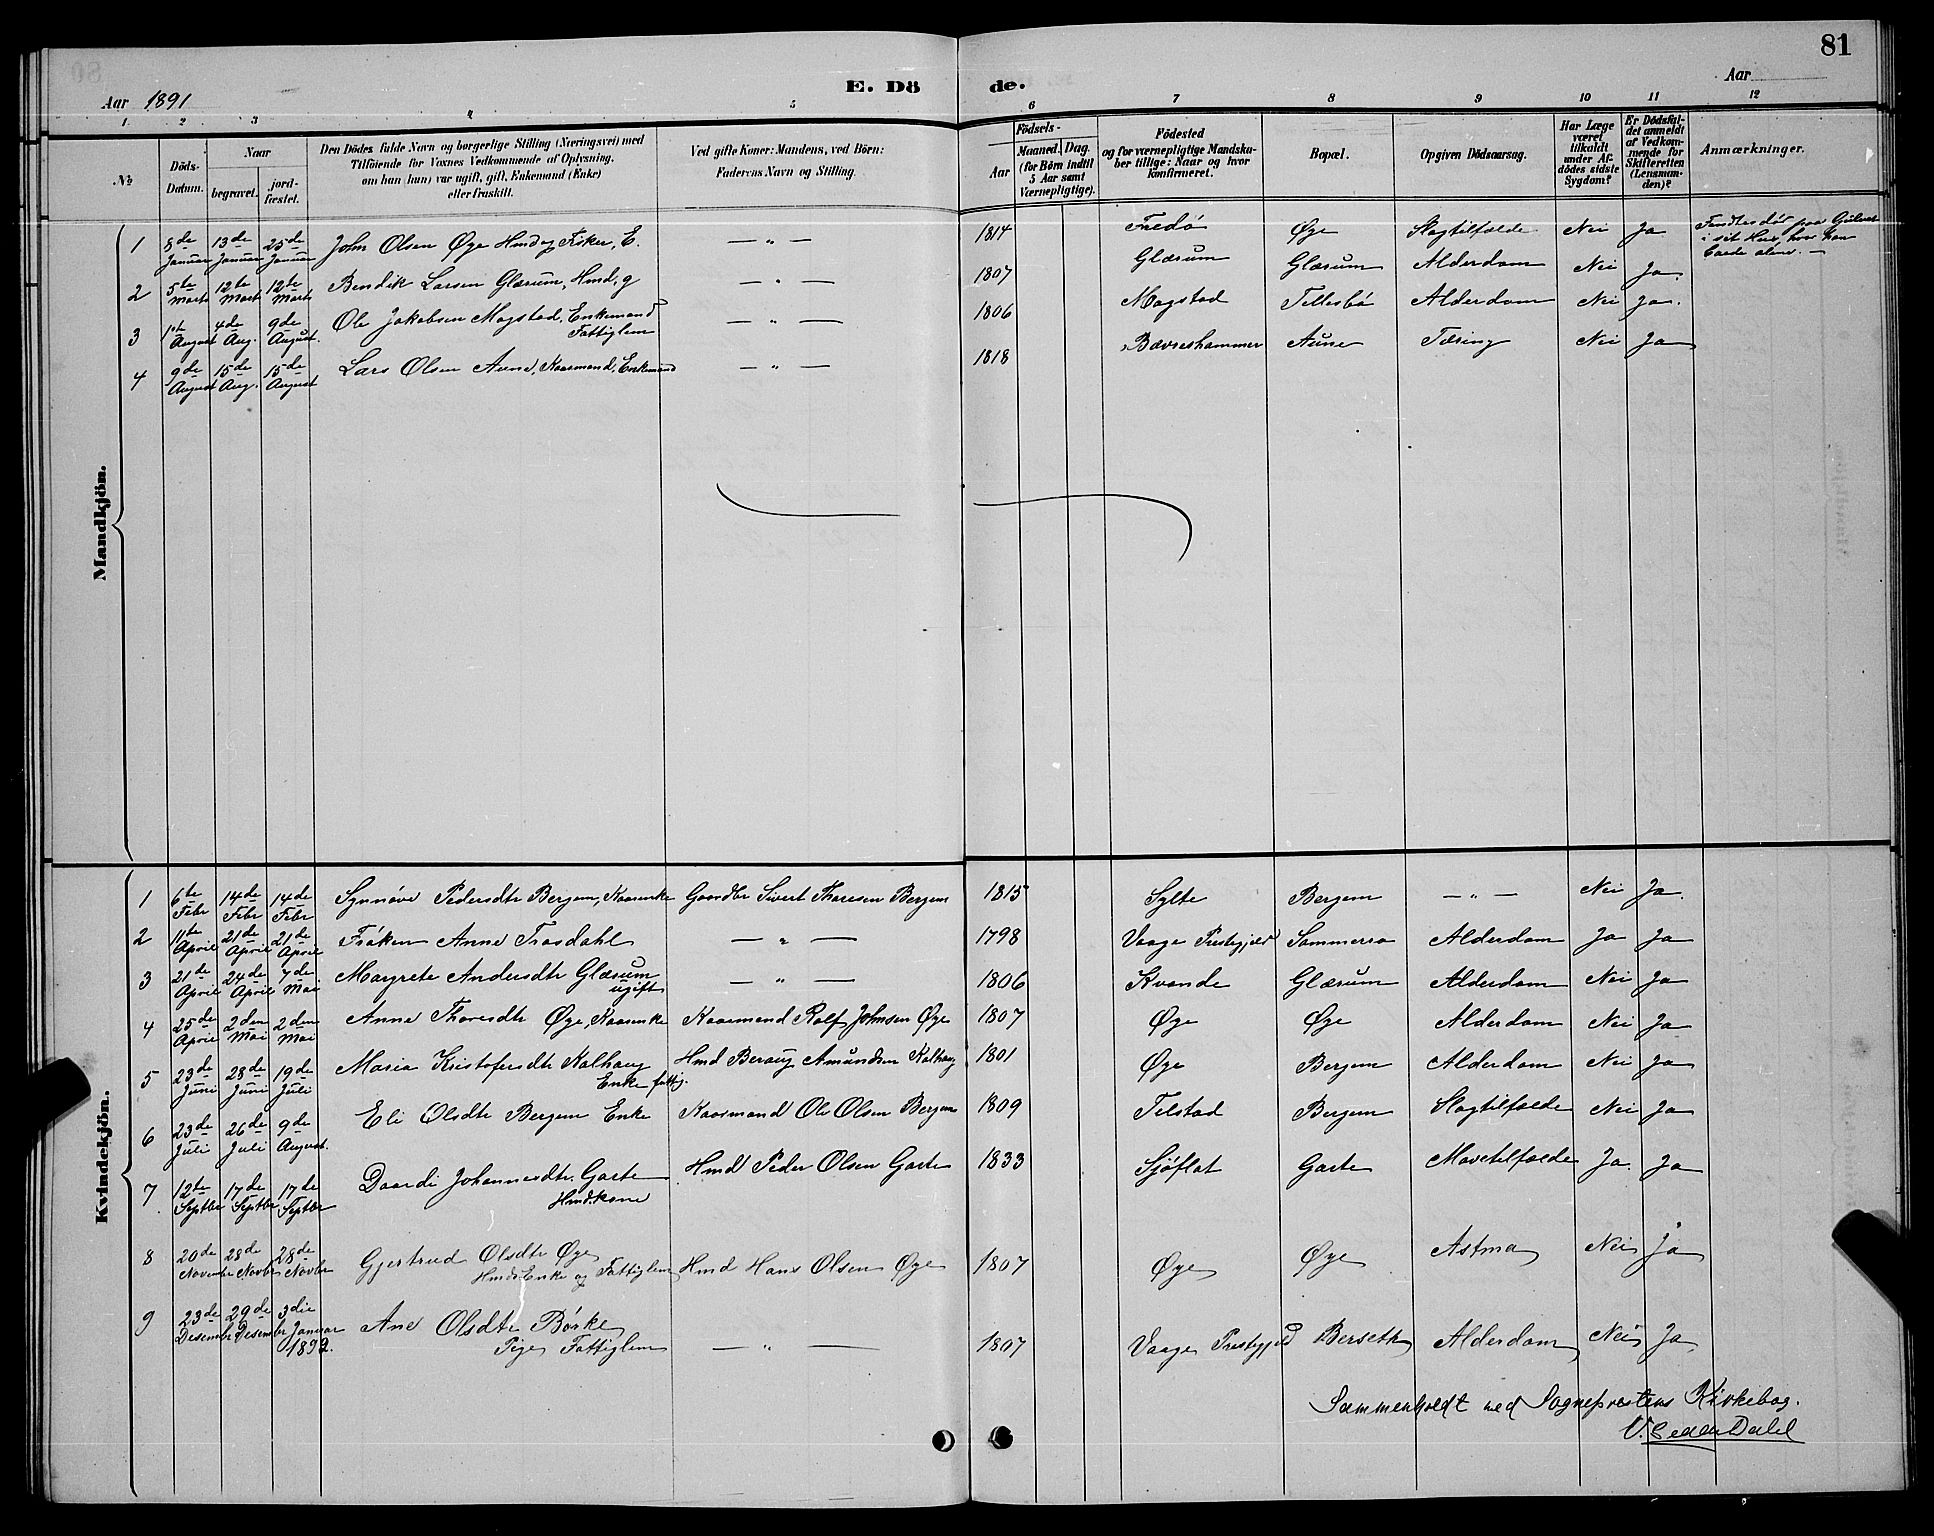 81
Aar 1891
E. Dö de.
Aar
1. 2 3 4 5 6 7 8 9 10 11 12
№
Döds-Datum.
Naar
begravet.
jord-fæstet.
Den Dödes fulde Navn og borgerlige Stilling (Næringsvei) med
Tilföiende for Voxnes Vedkommende af Oplysning.
om han (hun) var ugift, gift, Enkemand (Enke)
eller fraskilt.
Ved gifte Koner: Mandens, ved Börn:
Faderens Navn og Stilling.
Födsels-
Aar
Maaned. Dag.
(for Börn indtil
5 Aar samt
Værnepligtige).
Födested
og for værnepligtige Mandska-
ber tillige: Naar og hvor
konfirmeret.
Bopæl.
Opgiven Dödsaarsag.
Har Læge
været
tilkaldt
under Af-
dödes sidste
Sygdom?
Er Dödsfal-
det anmeldt
af Vedkom-
mende for
Skifteretten
(Lensman-
den)?
Anmærkninger.
Mandkjön.
1 8de Januar 13de Januar 25de Januar John Olsen Øye Hmd og Fisker, E. — " — 1814 Fredø Øye Slagtilfælde Nei Ja Fandtes død paa Gulvet
i sit Hus, hvor han
boede alene. —
2 5te Marts 12te Marts 12te Marts Bendik Larsen Glærum, Hmd, g — " — 1807 Glærum Glærum Alderdom Nei Ja.
3 1ste August 4de Aug. 9de August. Ole Jakobsen Mogstad, Enkemand — " — 1806 Mogstad Tellesbø Alderdom Nei Ja.
Fattiglem
4 9de August 15de Aug. 15de August Lars Olsen Aune, Kaarmand, Enkemand — " — 1818 Bævreshammer Aune Tæring Nei Ja
Kvindekjön.
1 6te Febr 14de Febr 14de Febr Synnøve Pedersdtr Bergem, Kaarenke Gaardbr Sivert Thoresen Bergem 1815 Sylte Bergem — " — Nei Ja.
2 11te April 21de April 21de April Frøken Anne Trosdahl — " — 1798 Vaage Prestegjeld Sommerro Alderdom Ja Ja
3 21de April 24de April 7de Mai Margrete Andersdtr Glærum — " — 1806 Kvande Glærum Alderdom Nei Ja
ugift
4 25de April 2den Mai 2den Mai Anne Thoresdtr Øye, Kaarenke Kaarmand Rolf Johnsen Øye 1807 Øye Øye Alderdom Nei Ja
5 23de Juni 28de Juni 19de Juli Maria Kristofersdtr Kalhaug Hmd Beraug Amundsen Kalhaug 1801 Øye Bergem Alderdom Nei Ja
Enke fattig.
6 23de Juli 26de Juli 9de August. Eli Olsdtr Bergem Enke Kaarmand Ole Olsen Bergem 1809 Telstad Bergem Slagtilfælde Nei Ja
7 12te Septbr 17de Septbr 17de Septbr Daardi Johannesdtr. Gaste Hmd Peder Olsen Gaste 1833 Sjøflot Gaste Mavetilfælde Ja. Ja
Hmd.kone
8 20de November 28de Novbr 28de Novbr Gjertrud Olsdtr Øye Hmd Hans Olsen Øye 1807 Øye Øye Astma Nei Ja
Hmds Enke og Fattiglem
9 23de Desembr 29de Desembr 3die Januar 1892. Ane Olsdtr Børke — " — 1807 Vaage Prestegjeld Berseth Alderdom Nei Ja
Pige, Fattiglem
Sammenholdt med Sogneprestens Kirkebog.